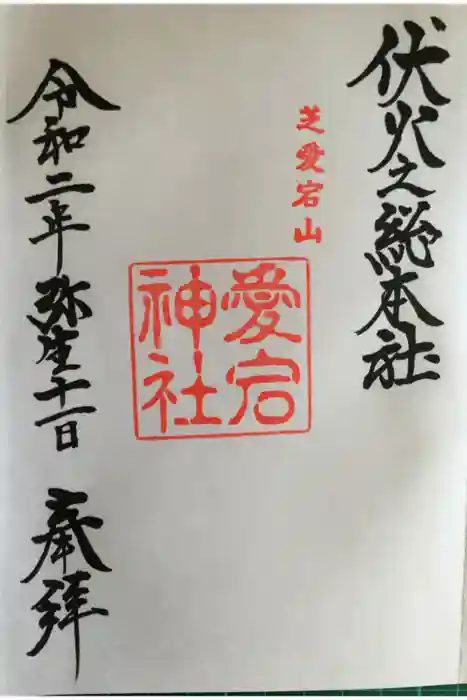 伏火之総本社
芝愛宕山
愛宕
神社
令和二年弥生十一日
奉拝